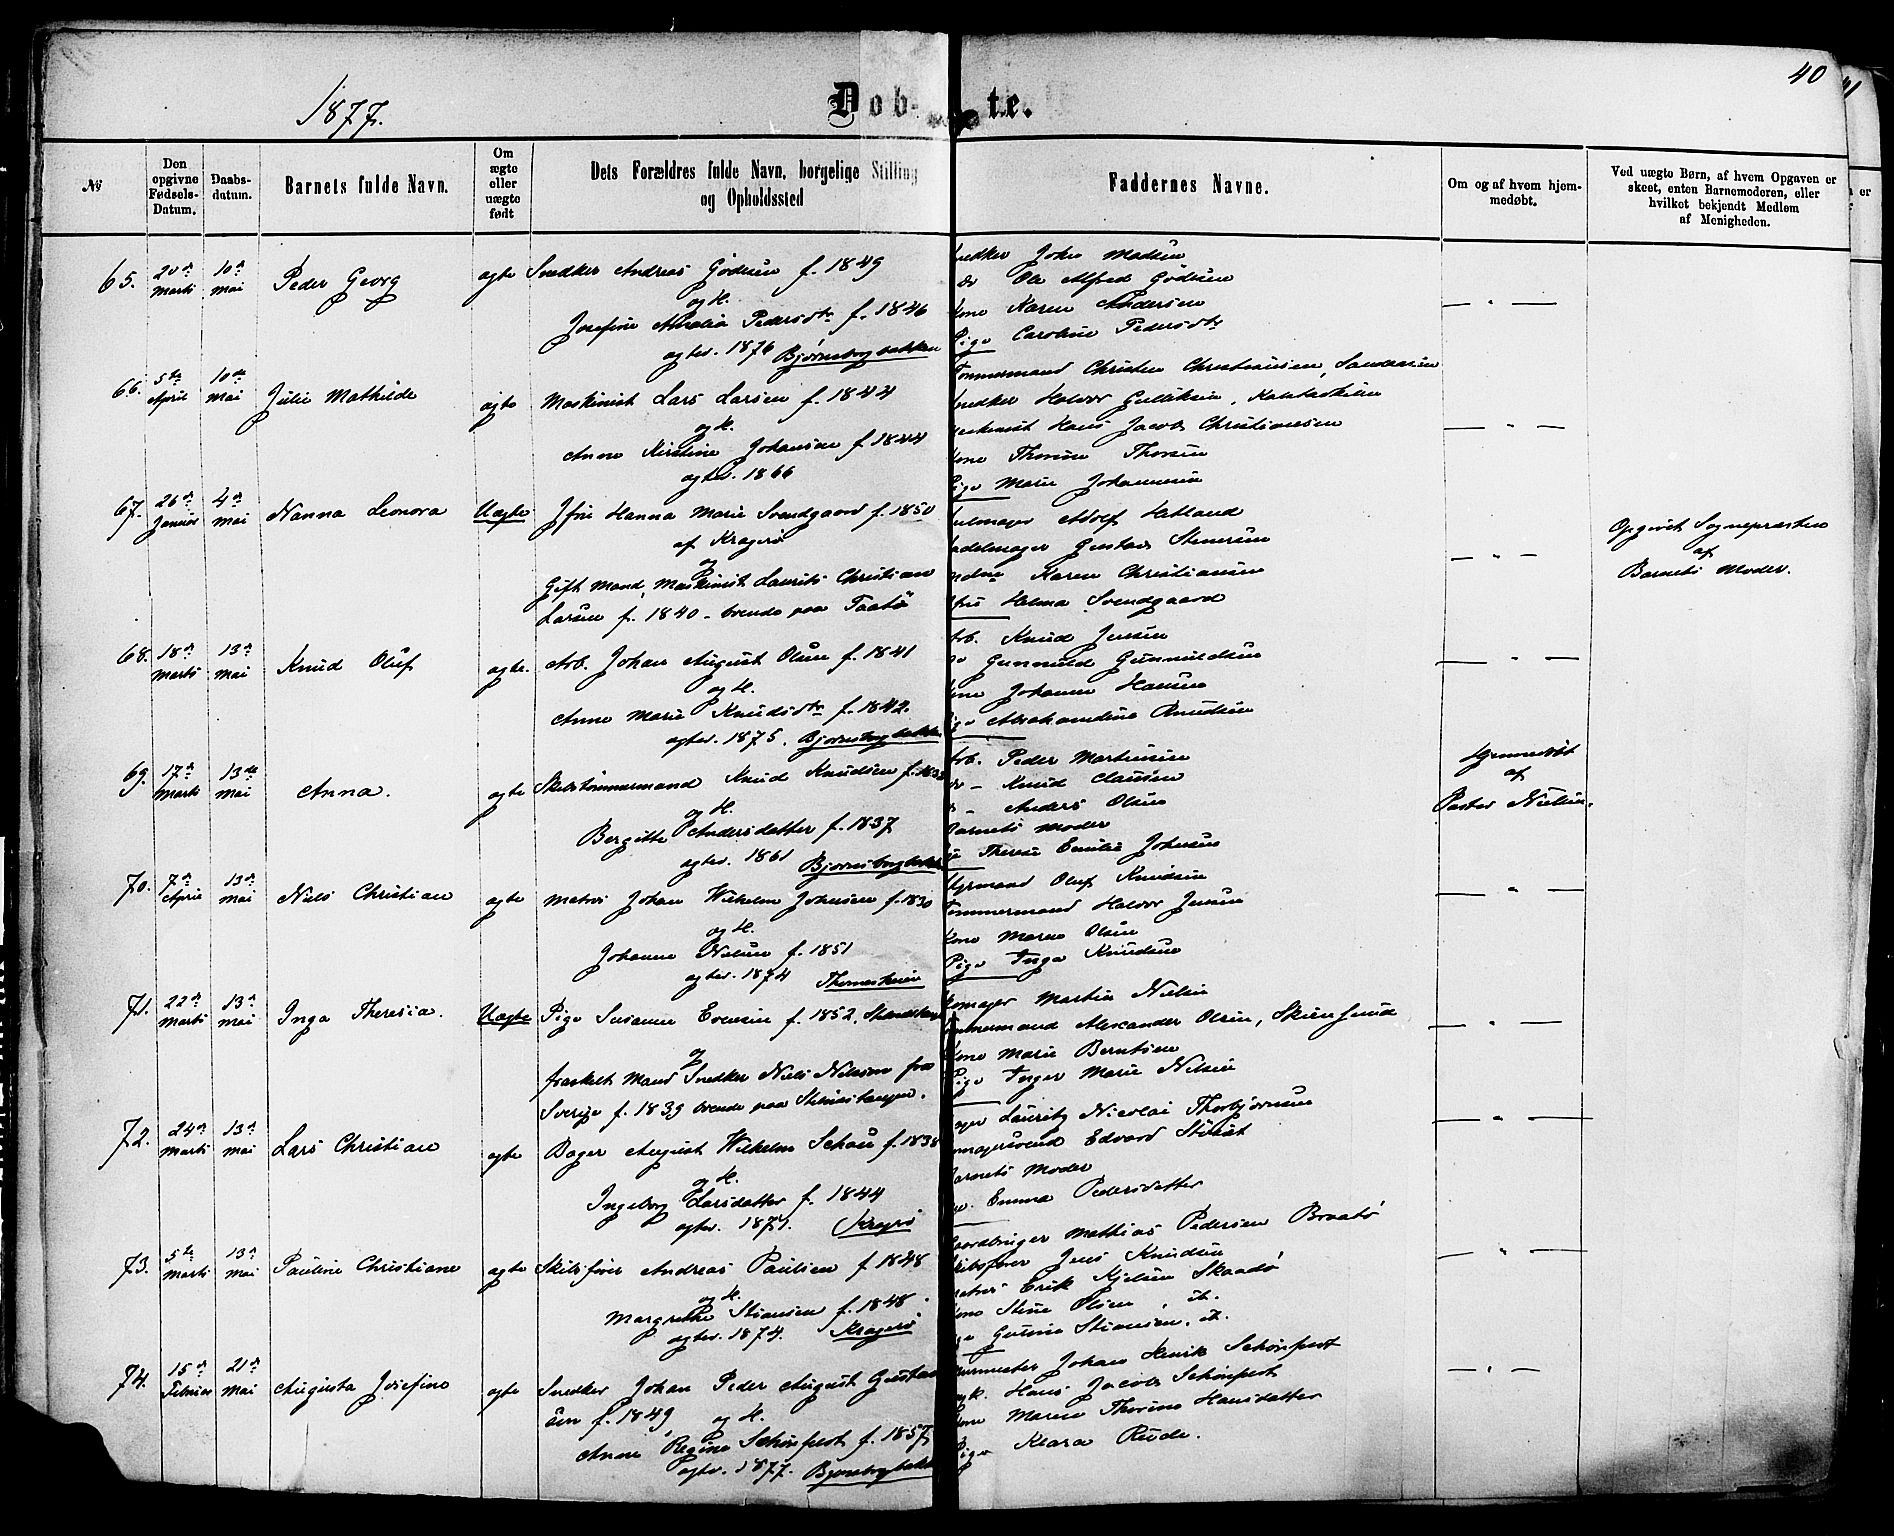 40
1877.
Dob- te.
No
Den opgivne Fødsels-Datum.
Daabs-datum.
Barnets fulde Navn.
Om ægte eller uægte født
Dets Forældres fulde Navn, borgelige Stilling og Opholdssted
Faddernes Navne.
Om og af hvem hjem-medøbt.
Ved uægte Børn, af hvem Opgaven er skeet, enten Barnemoderen, eller hvilket bekjendt Medlem af Menigheden.
65. 20de Marts 10de Mai Peder Georg ægte Snedker Andreas Gødesen f. 1849
og H.
Josefine Amalia Pedersdtr f. 1846
ægtev. 1876 Bjørnsborgbakken
nedker John Madsen
do Ole Alfred Gødesen
Kone Karen Andersen
Pige Caroline Pedersdtr
— " —
66. 5te April 10de Mai Julie Mathilde ægte Maskinist Lars Larsen f. 1844
og H.
Anne Kirstine Johansen f. 1844
ægtev. 1866
Tømmermand Christen Christiansen,
nedker Halvor Gulliksen,
Hans Jacob Christiansen
Kone Thorine Thorsen
Pige Marie Johannesen
— " —
67. 26de Januar 4de Mai Nanna Leonora Uægte Jfru Hanna Marie Svendgaard f. 1850
af Kragerø
og
Gift Mand, Maskinist Laurits Christian
Larsen f. 1840 - boende paa Taatø
Adolf Hatland
adelmager Gustav Stenersen
Karen Christiansen
Jfru Helma Svendgaard
— " —
Opgivet Sognepræsten
af
Barnets Moder.
68. 18de Marts 13de Mai Knud Oluf ægte. Arb. Johan August Olsen f. 1841
og H.
Anne Marie Knudsdtr f. 1842.
ægtev. 1875. Bjørnsborgbakken
Arb. Knud Jensen
Gunnuld Gunnuldsen
Kone Johanne Hansen
Pige Abrahamine Knudsen
— " —
69. 17de Marts 13de Mai Anna. ægte Skibstømmermand Knud Knudsen f. 1833
og H.
Bergitte Andersdatter f. 1837
ægtev. 1861 Bjørnsborgbakken
Arb. Peder Martinsen
do - Knud Clausen
do - Anders Olsen
Barnets Moder
Therese Emilie Johnsen
Hjemmedøbt
af
Pastor Nielsen.
70. 7de April 13de Mai Niels Christian ægte Matros Johan Wilhelm Johnsen f. 1830
og H.
Johanne Nielsen f. 1851
ægtev. 1874 Thomesheien
Styrmand Oluf Knudsen
Tømmermand Halvor Jensen
Kone Maren Olsen
Pige Inga Knudsen
— " —
71. 22de Marts 13de Mai Inga Theresia. Uægte Pige Susanne Evensen f. 1852,
og
fraskilt Mand Snedker Niels Nilsson fra
Sverige f. 1839 boende paa Stilnestangen.
Martin Nielsen
Tømmermand Alexander Olsen,
Kone Marie Berntsen
Pige Inger Marie Nilsen
— " —
72. 24de Marts 13de Mai Lars Christian ægte Bager August Wilhelm Schau f. 1838
og H.
Ingeborg Larsdatter f. 1844
ægtev. 1871. Kragerø
ager Lauritz Nicolai Thorbjørnsen
Edvard
Barnets Moder
Emma Pedersdatter
— " —
73. 5te Marts 13de Mai Pauline Christiane ægte Skibsfører Andreas Paulsen f. 1848
og H.
Margrethe Stiansen f. 1848.
ægtev. 1874. Kragerø
Gaardbruger Mathias Pedersen Braatø
Skibsfører Jens Knudsen
Matros Erik Kjelsen Skaadø
Kone Stine Olsen, it.
Pige Gurine Stiansen, it.
— " —
74. 15de Februar 21de Mai Augusta Josefine ægte Snedker Johan Peder August Gustav-
sen f. 1849, og H.
Anne Regine Schønfest f. 1857,
ægtev. 1877. Bjørnsborgbakken
Johan Henrik Schønfest
Hans Jacob Schønfest
Kone Maren Thorine Hansdatter
Pige Klara Rude.
— " —